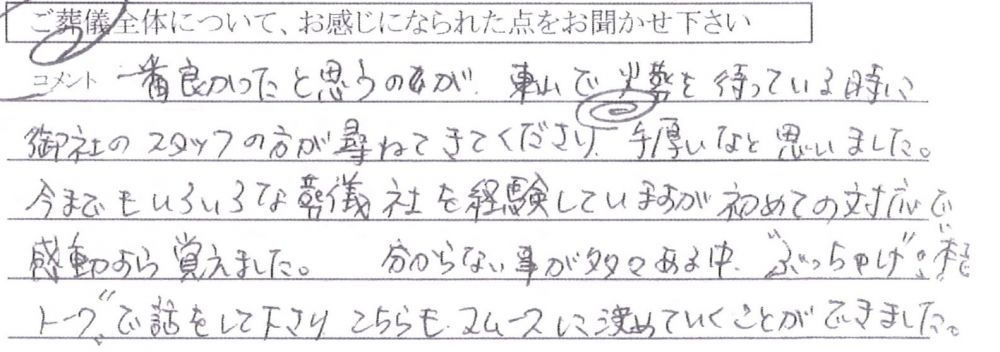 ご葬儀全体について、お感じになられた点をお聞かせ下さい
コメント 一番良かったと思うのが、東山で火葬を待っている時に
御社のスタッフの方が尋ねてきてくださり、手厚いなと思いました。
今までもいろいろな葬儀社を経験していますが初めての対応で
感動すら覚えました。 分からない事が多々ある中、"ぶっちゃけ"
トーク"で話をして下さり こちらもスムースに決めていくことができました。